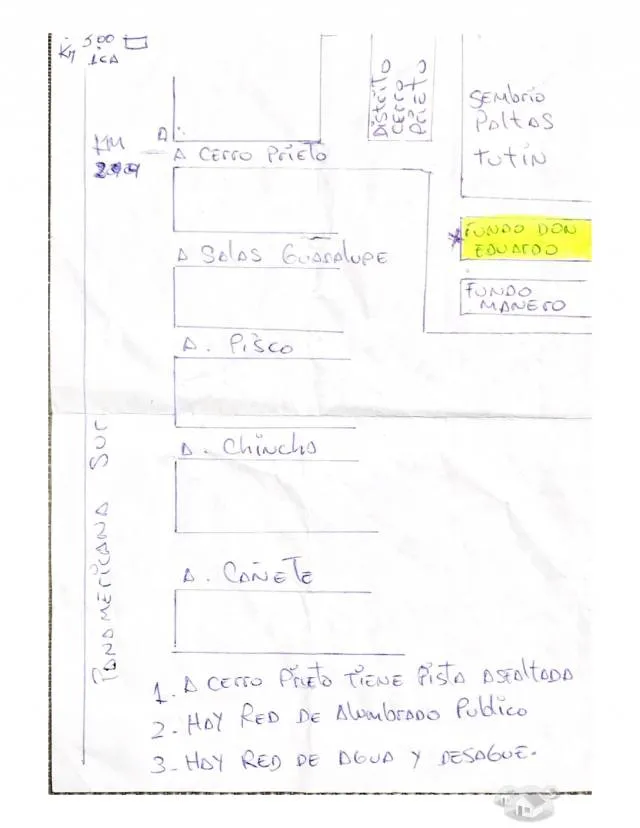 Km 300
ICA
KM
A CERRO PRIETO
DISTRITO
CERRO
PRIETO
SEMBRIO
PALTAS
TUTIN
FUNDO DON
EDUARDO
FUNDO
MANERO
A SALAS GUADALUPE
A. PISCO
A. CHINCHA
A. CAÑETE
PANAMERICANA SUR
1. A CERRO PRIETO TIENE PISTA ASFALTADA
2. HAY RED DE ALUMBRADO PUBLICO
3. HAY RED DE AGUA Y DESAGUE.